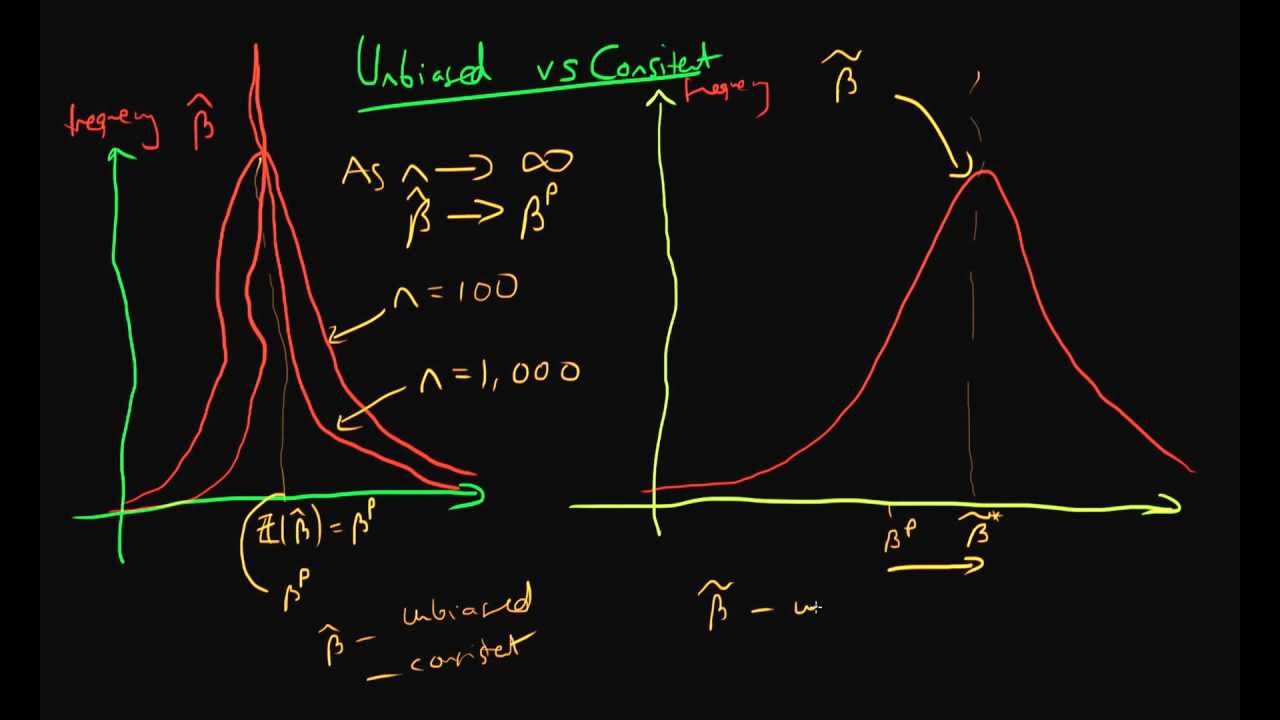 Unbiased vs Consitent
frequency β̂
As n → ∞
β̂ → βᵖ
n = 100
n = 1,000
E(β̂) = βᵖ
βᵖ
β̂ – unbiased
– consistet
frequency
β̃
βᵖ β̃*
β̃ –